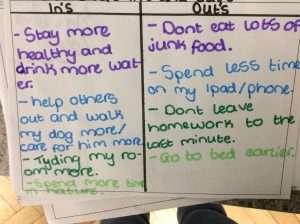 In's
- Stay more
healthy and
drink more wat-
er.
- help others
out and walk
my dog more/
care for him more
- Tyding my ro-
om more.
- Spend more time
in nature.
Outs
- Dont eat lots of
junk food.
- Spend less time
on my Ipad/phone.
- Dont leave
homework to the
last minute.
- Go to bed earlier.